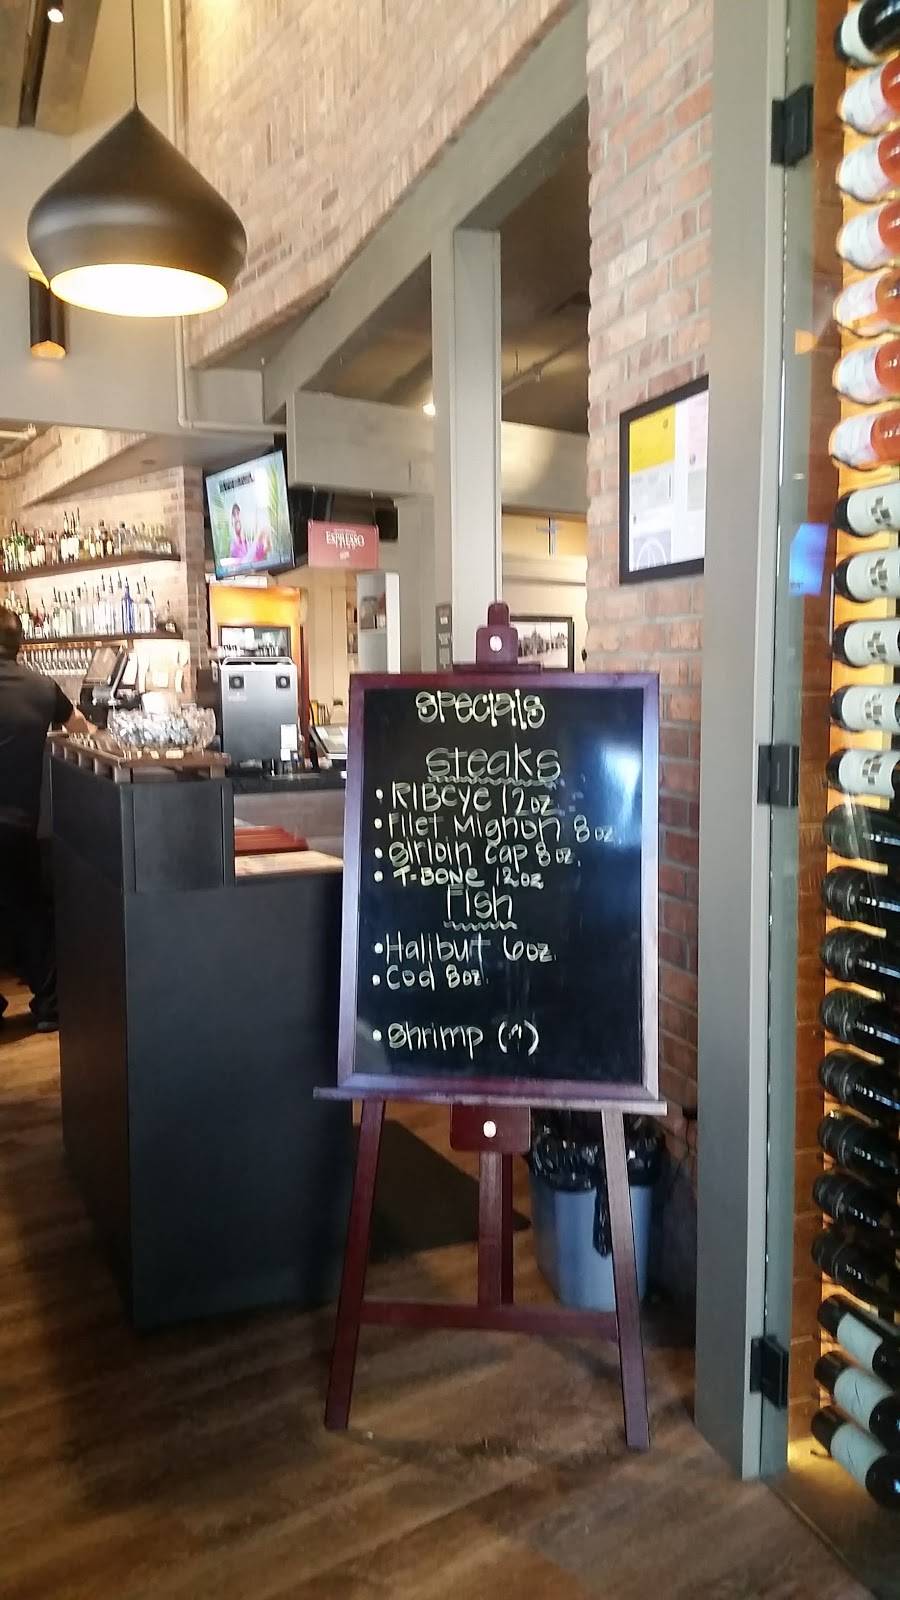 ESPRESSO
Specials
Steaks
• Ribeye 12oz
• Filet Mignon 8oz.
• Sirloin Cap 8oz.
• T-Bone 12oz
Fish
• Halibut 6oz.
• Cod 8oz.
• Shrimp